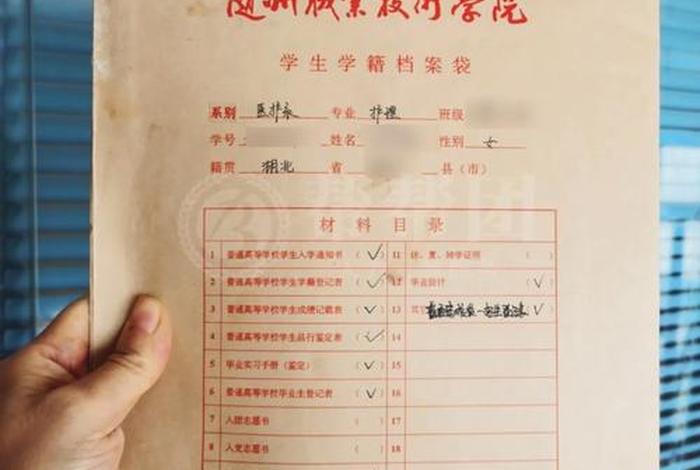 随州职业技术学院
学生学籍档案袋
系别 医护系 专业 护理 班级
学号 姓名 性别 女
籍贯 湖北 省 县(市)
材料目录
1 普通高等学校学生入学通知书 (✓) 11 休、复、转学证明 ( )
2 普通高等学校学生学籍登记表 (✓) 12 毕业设计 (✓)
3 普通高等学校学生成绩记载表 (✓) 13 其它 (✓)
4 普通高等学校学生品行鉴定表 (✓) 14
5 毕业实习手册(鉴定) (✓) 15
6 普通高等学校毕业生登记表 (✓) 16
7 入团志愿书 ( ) 17
8 入党志愿书 ( ) 18